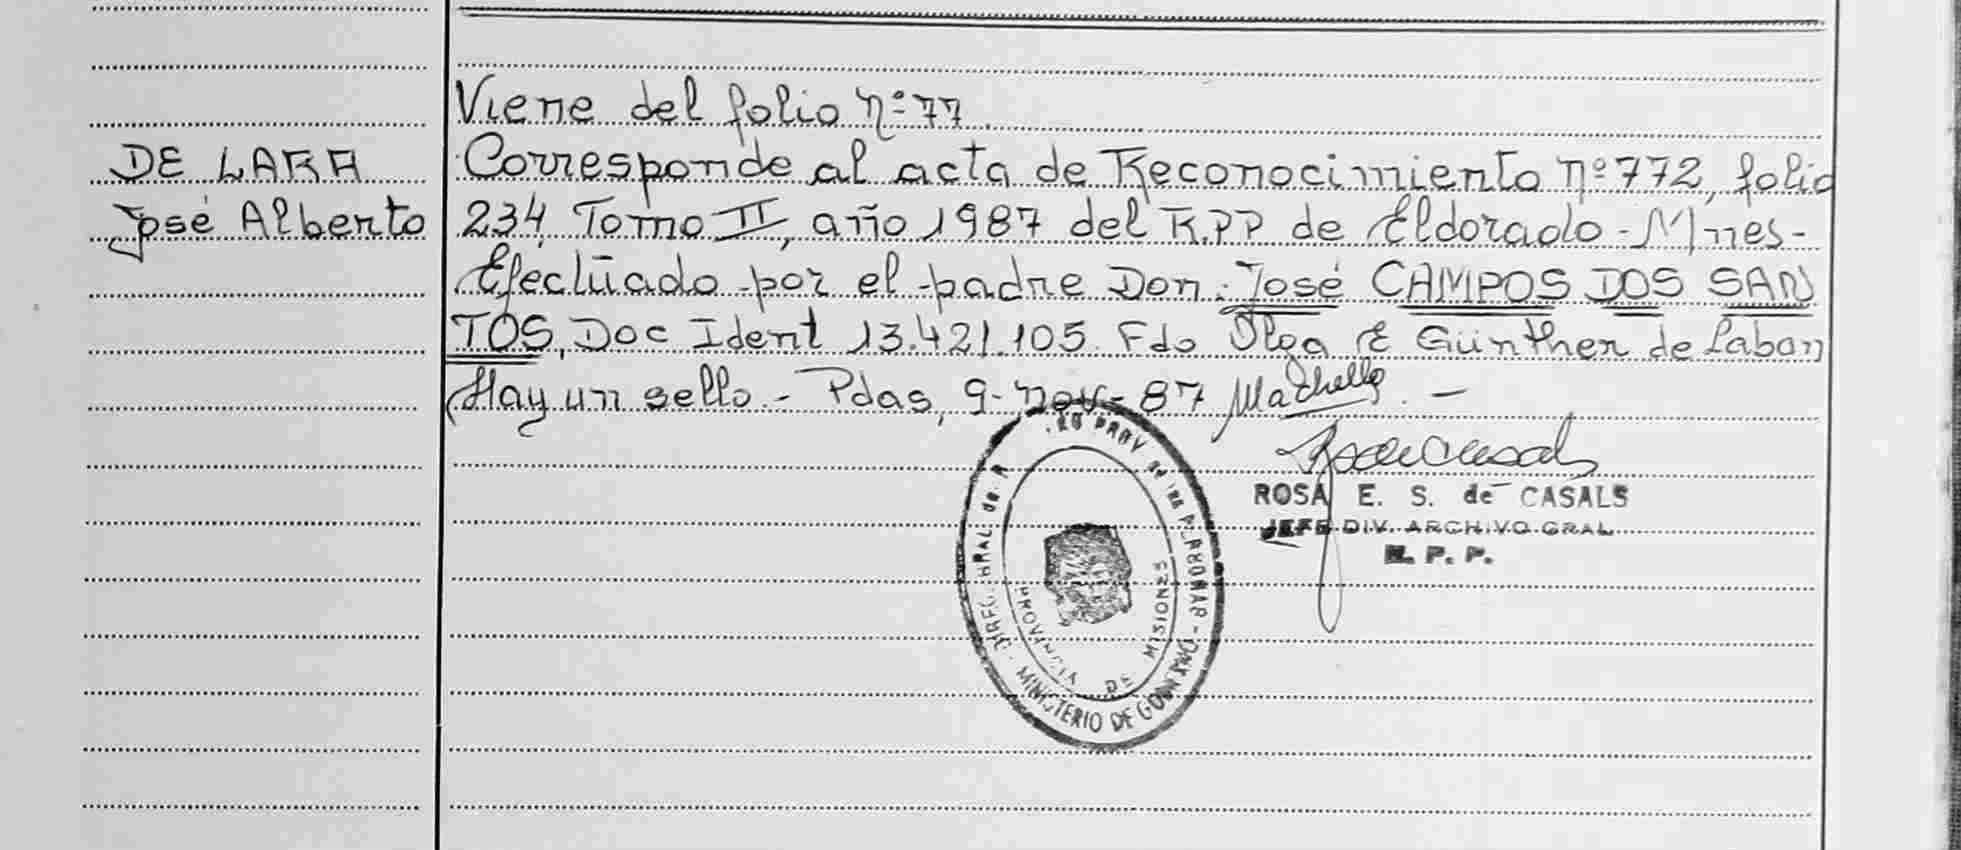 Viene del folio Nº 77.
DE LARA
José Alberto
Corresponde al acta de Reconocimiento Nº 772, folio
234, Tomo II, año 1987 del R.P.P de Eldorado - Mnes -
Efectūado por el padre Don: José CAMPOS DOS SAN
TOS, Doc Ident 13.421.105. Fdo Olga E Günther de Laban
Hay un sello. - Pdas, 9- nov - 87 . -
ROSA E. S. de CASALS
JEFE DIV. ARCHIVO GRAL
R. P. P.
MINISTERIO DE GOBIERNO
PROVINCIA DE MISIONES